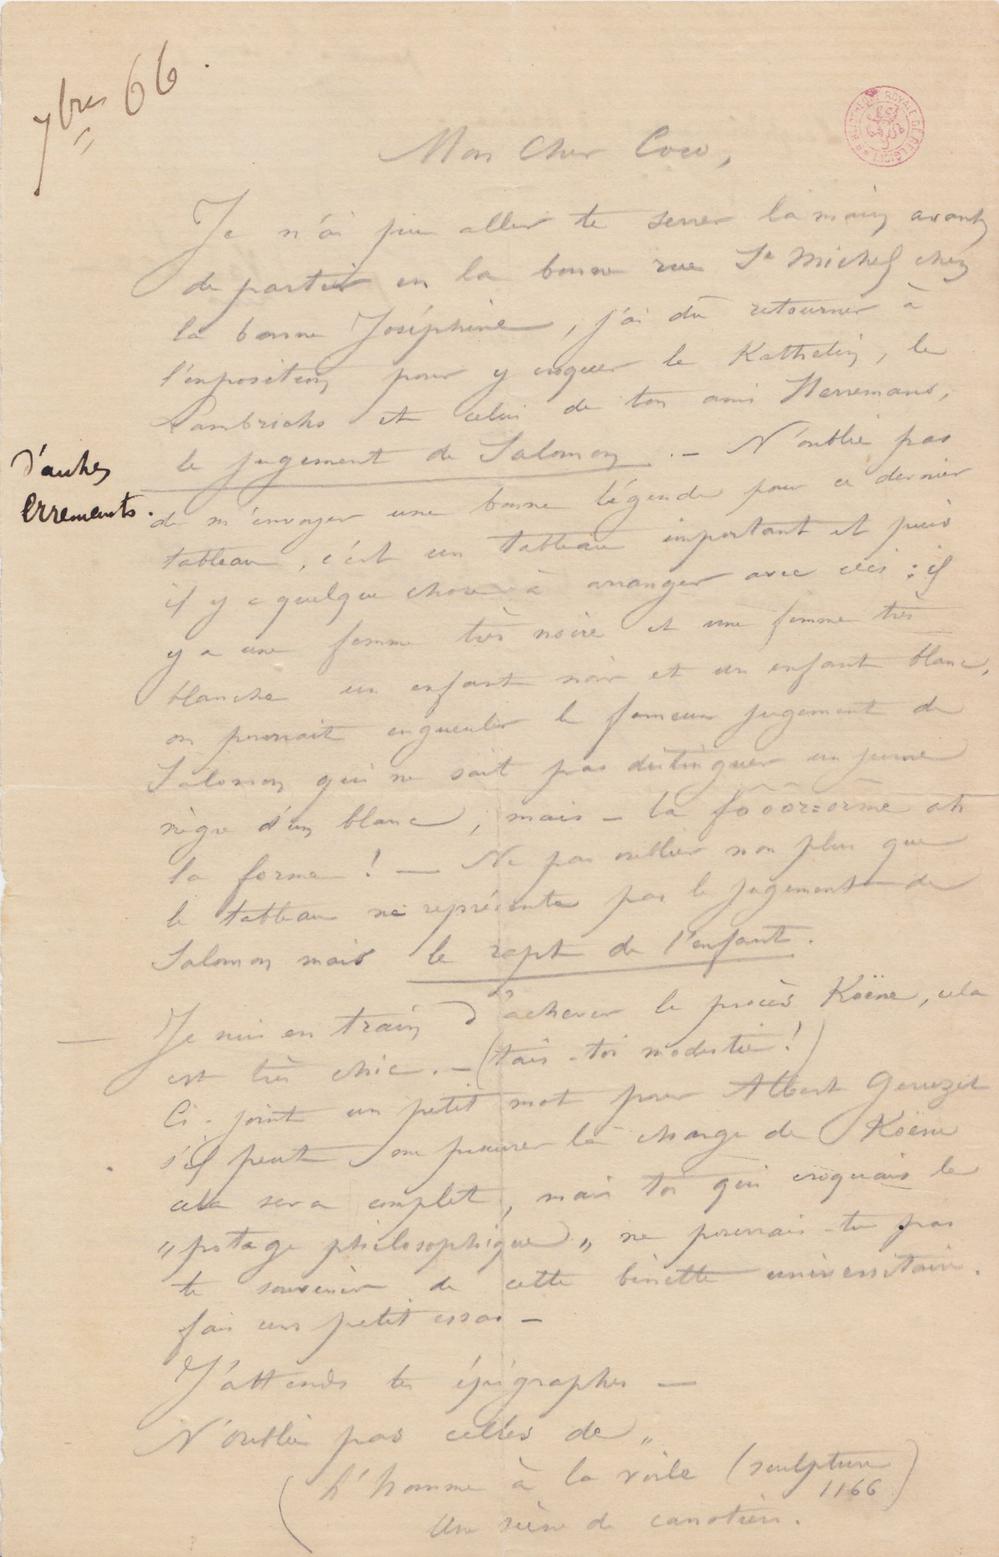 7bre 66.
BIBLIOTHÈQUE ROYALE DE BELGIQUE
Mon Cher Coco,
Je n'ai pu aller te serrer la main avant
de partir en la bonne rue St Michel chez
la bonne Joséphine, j'ai du retourner à
l'exposition pour y croquer le Kathelin, le
Lambrichs et celui de ton ami Herremans,
le jugement de Salomon. — N'oublie pas
d'autres
errements.
de m'envoyer une bonne légende pour ce dernier
tableau, c'est un tableau important et puis
il y a quelque chose à arranger avec ceci : il
y a une femme très noire et une femme très
blanche un enfant noir et un enfant blanc,
on pourrait engueuler le fameux jugement de
Salomon qui ne sait pas distinguer un jeune
nègre d'un blanc, mais — la fôôôrzorme oh
la forme ! — Ne pas oublier non plus que
le tableau ne représente pas le jugement de
Salomon mais le rapt de l'enfant.
— Je suis en train d'achever le procès Koëne, cela
est très chic. — (tais-toi modestie !)
Ci-joint un petit mot pour Albert
s'il peut me procurer la charge de Koëne
cela sera complet, mais toi qui croquais le
"potage philosophique" ne pourrais-tu pas
te souvenir de cette binette universitaire.
fais un petit essai —
J'attends tes épigraphes —
N'oublie pas celles de "
(L'homme à la voile (sculpture
1166)
Un rêve de canotier.